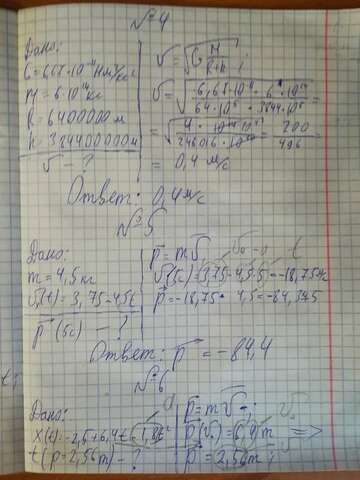 №4
Дано:
G = 6,67·10⁻¹¹ Нм²/кг²
M = 6·10²⁴ кг
R = 6400000 м
h = 384400000 м
v - ?
v = √(G M/(R+h))
v = √(6,67·10⁻¹¹ · 6·10²⁴ / 64·10⁵ · 3844·10⁵) =
= 200/496 =
= 0,4 м/с
Ответ: 0,4 м/с
№5
Дано:
m = 4,5 кг
v(t) = 3,75 - 4,5t
p (5c) - ?
p = m v
v(5c) = 3,75 - 4,5·5 = -18,75 м
p = -18,75 · 4,5 = -84,375
Ответ: p = -84,4
№6
Дано:
x(t) = -2,5 + 6,4t - 1,8t²
t (p = 2,56m) - ?
p = m v;
p(v₀) = 6,4m =>
p = 2,56m;